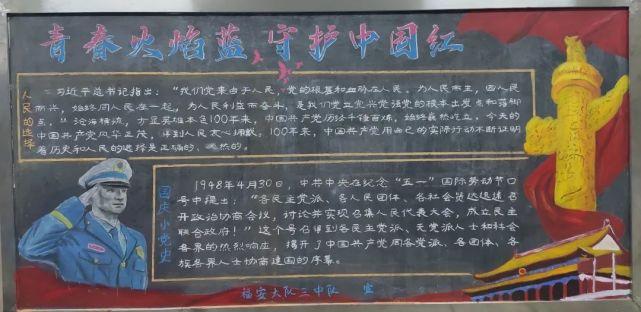 青春火焰蓝 守护中国红
人民的选择
习近平总书记指出：“我们党来自于人民，党的根基和血脉在人民。为人民而生，因人民
而兴，始终同人民在一起，为人民利益而奋斗，是我们党立党兴党强党的根本出发点和落脚
点。”沧海横流，方显英雄本色100年来，中国共产党历经千锤百炼，始终巍然屹立。今天的
中国共产党风华正茂，得到人民衷心拥戴。100年来，中国共产党用自己的实际行动不断证明
着历史和人民的选择是正确的、必然的。
国庆小党史
1948年4月30日，中共中央在纪念“五一”国际劳动节口
号中提出：“各民主党派、各人民团体、各社会贤达迅速召
开政治协商会议，讨论并实现召集人民代表大会，成立民主
联合政府！”这个号召得到各民主党派、无党派人士和社会
各界的热烈响应，揭开了中国共产党同各党派、各团体、各
族各界人士协商建国的序幕。
福安大队三中队 宣